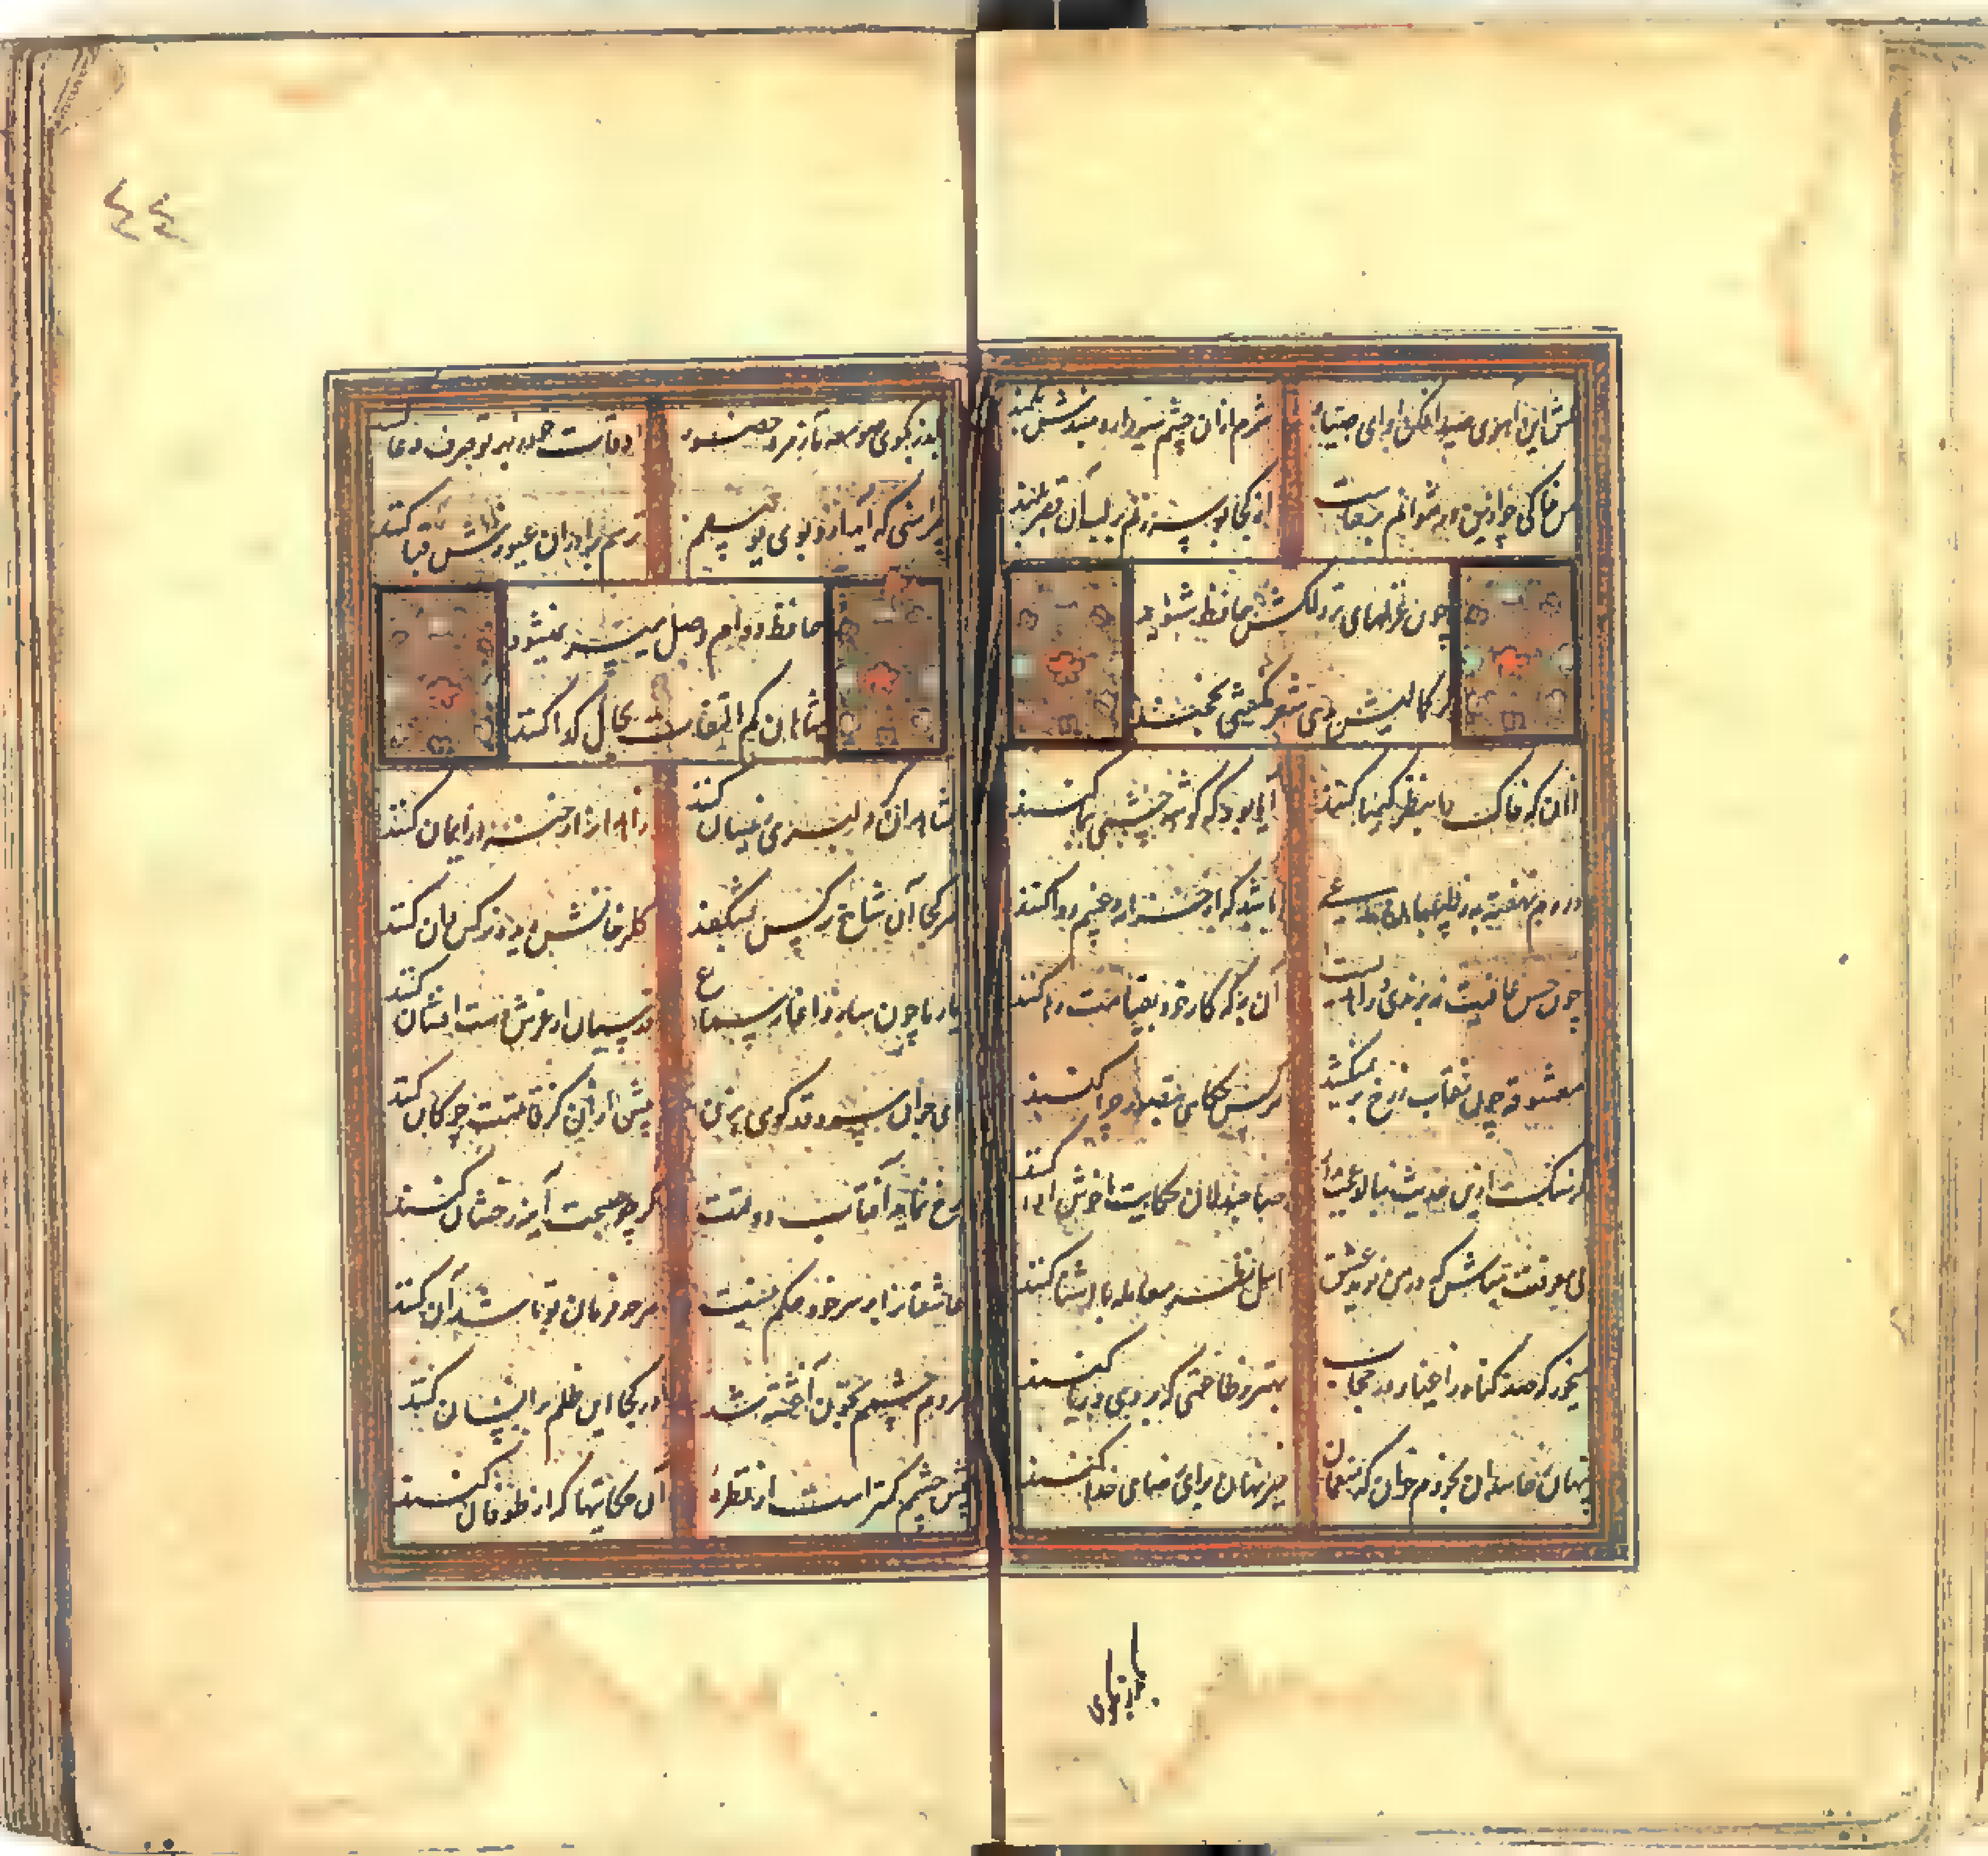 مکش این آهوی صید افکن ای صیاد شرم ازان چشم سیه دار و مبندش بکمند
من خاکی که ازین در نتوانم برخاست از کجا بوسه زنم بر لب آن قصر بلند
چون غزلهای تر دلکش حافظ شنود
گر کمالیش بود شعر نگوید بخجند
آنان که خاک را بنظر کیمیا کنند آیا بود که گوشه چشمی بما کنند
دردم نهفته به ز طبیبان مدعی باشد که از خزانه غیبم دوا کنند
چون حسن عاقبت نه برندی و زاهدیست آن به که کار خود بعنایت رها کنند
معشوقه چون نقاب ز رخ بر نمیکشد هر کس حکایتی بتصور چرا کنند
گر سنگ ازین حدیث بنالد عجب مدار صاحبدلان حکایت دل خوش ادا کنند
بی معرفت مباش که در من یزید عشق اهل نظر معامله با آشنا کنند
می خور که صد گناه ز اغیار در حجاب بهتر ز طاعتی که بروی و ریا کنند
پنهان ز حاسدان بخودم خوان که منعمان خیر نهان برای رضای خدا کنند
بگذر بکوی
بگذر بکوی صومعه تا زمره حضور اوقات خود ز بهر تو صرف دعا کنند
پیراهنی که آید ازو بوی یوسفم ترسم برادران غیورش قبا کنند
حافظ دوام وصل میسر نمیشود
شاهان کم التفات بحال گدا کنند
شاهدان گر دلبری زینسان کنند زاهدانرا رخنه در ایمان کنند
هر کجا آن شاخ نرگس بشکفد گلرخانش دیده نرگس دان کنند
یار ما چون سازد آغاز سماع قدسیان از عرش دست افشان کنند
ای جوان سرو قد گوی بزن پیش ازان کز قامتت چوگان کنند
رخ نماید آفتاب دولتت گر چو صبحت آینه رخشان کنند
عاشقانرا بر سر خود حکم نیست هر چه فرمان تو باشد آن کنند
مردم چشمم بخون آغشته شد در کجا این ظلم بر انسان کنند
پیش چشمم کمتر است از قطره آن حکایتها که از طوفان کنند